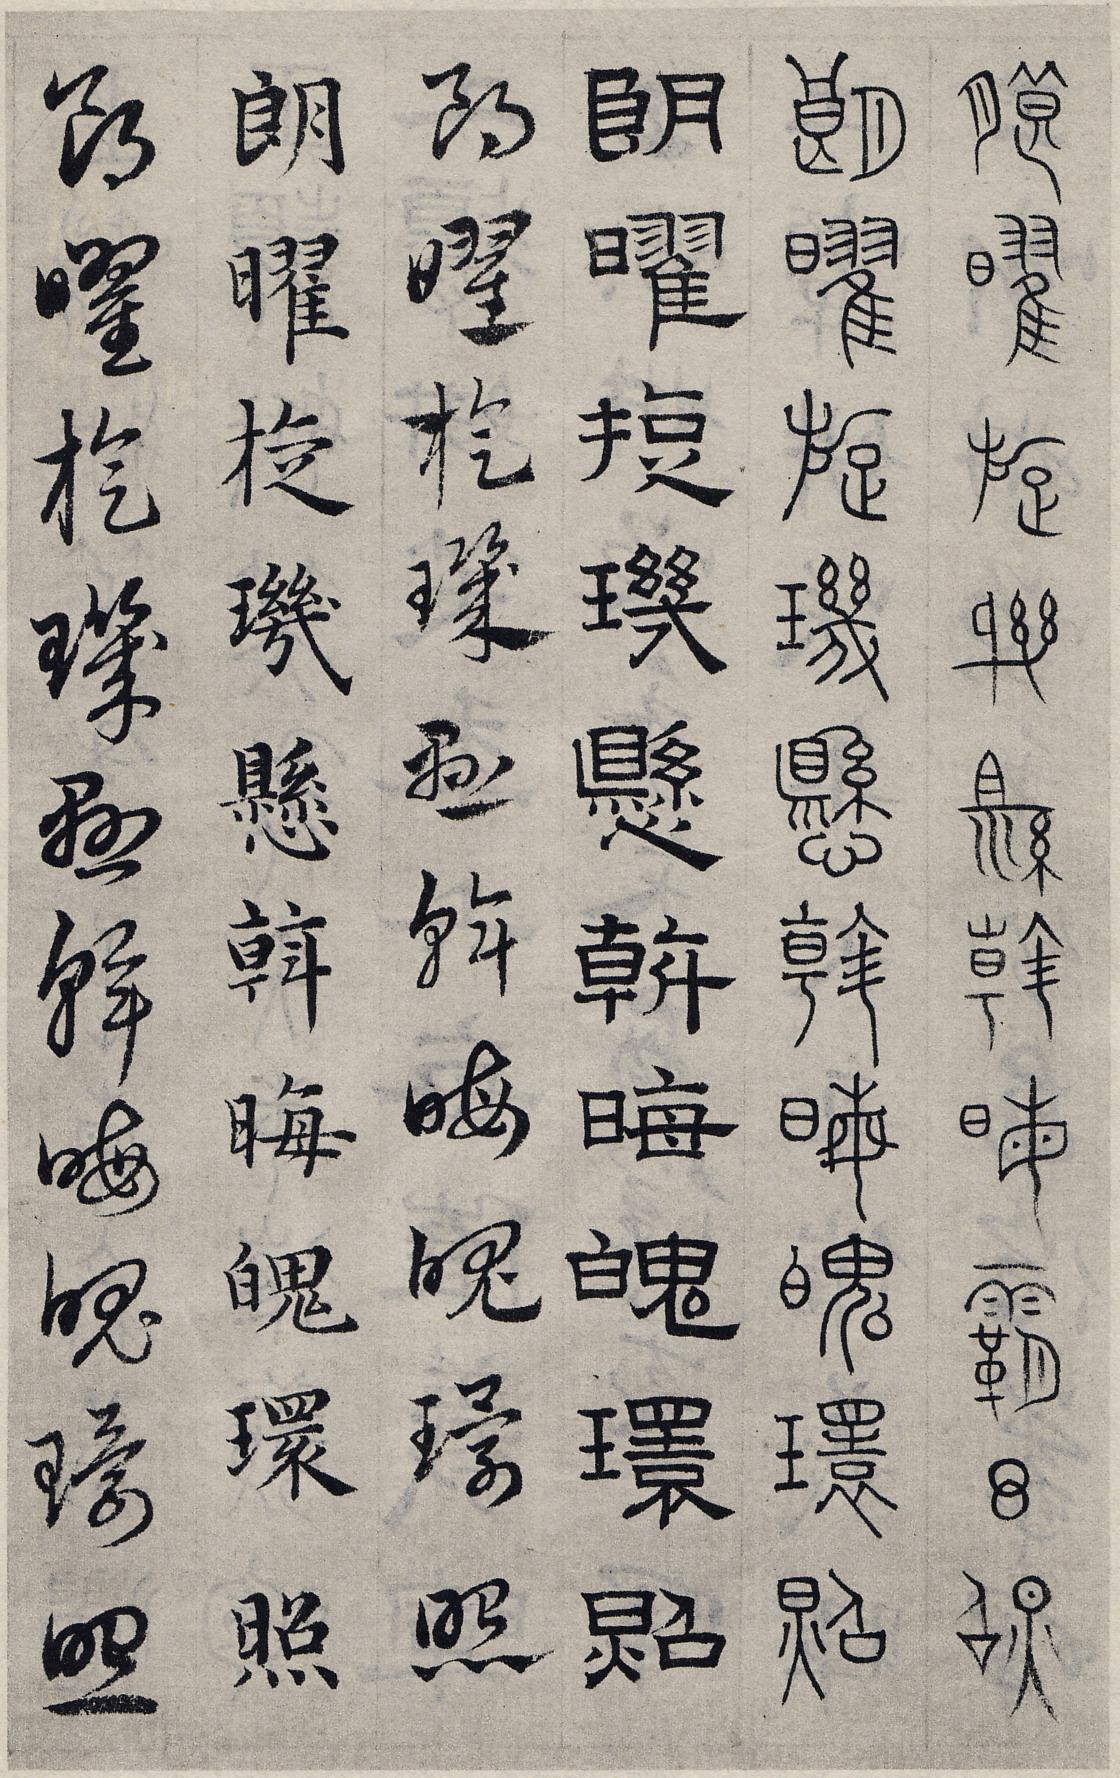 朗曜旋璣懸斡晦魄環照
朗曜旋璣懸斡晦魄環照
朗曜旋璣懸斡晦魄環照
朗曜旋璣懸斡晦魄環照
朗曜旋璣懸斡晦魄環照
朗曜旋璣懸斡晦魄環照